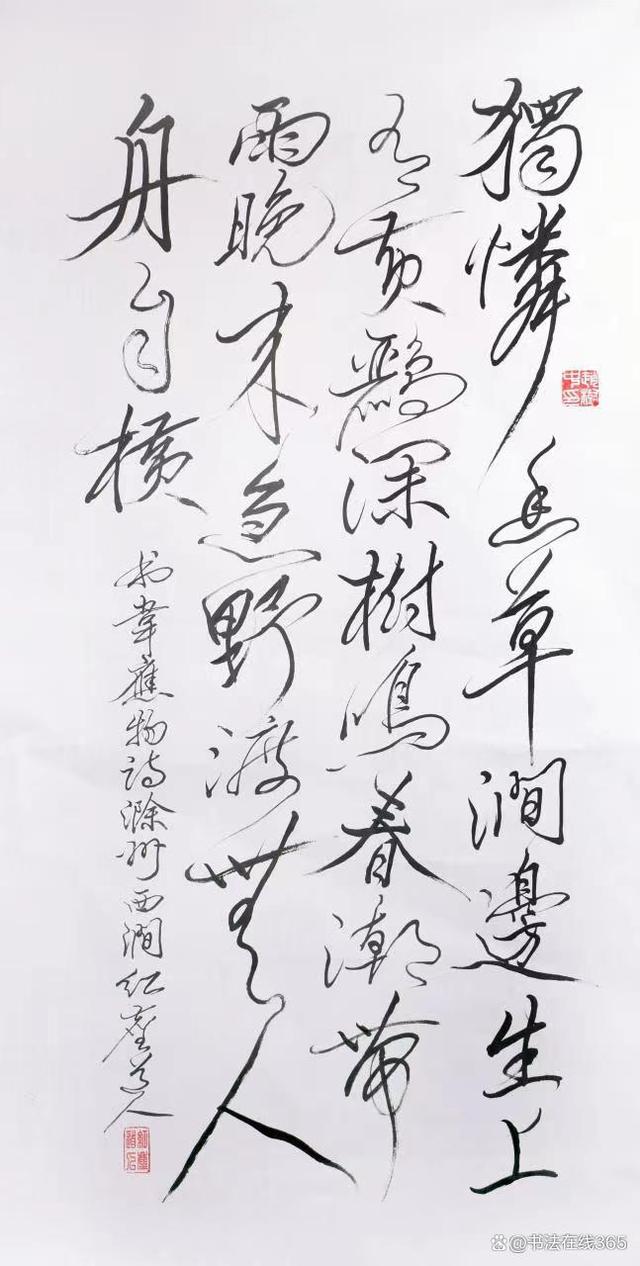 獨憐幽草澗邊生上
有黃鸝深樹鳴春潮帶
雨晚來急野渡無人
舟自橫
书韋應物诗滁州西澗红塵道人
@书法在线365